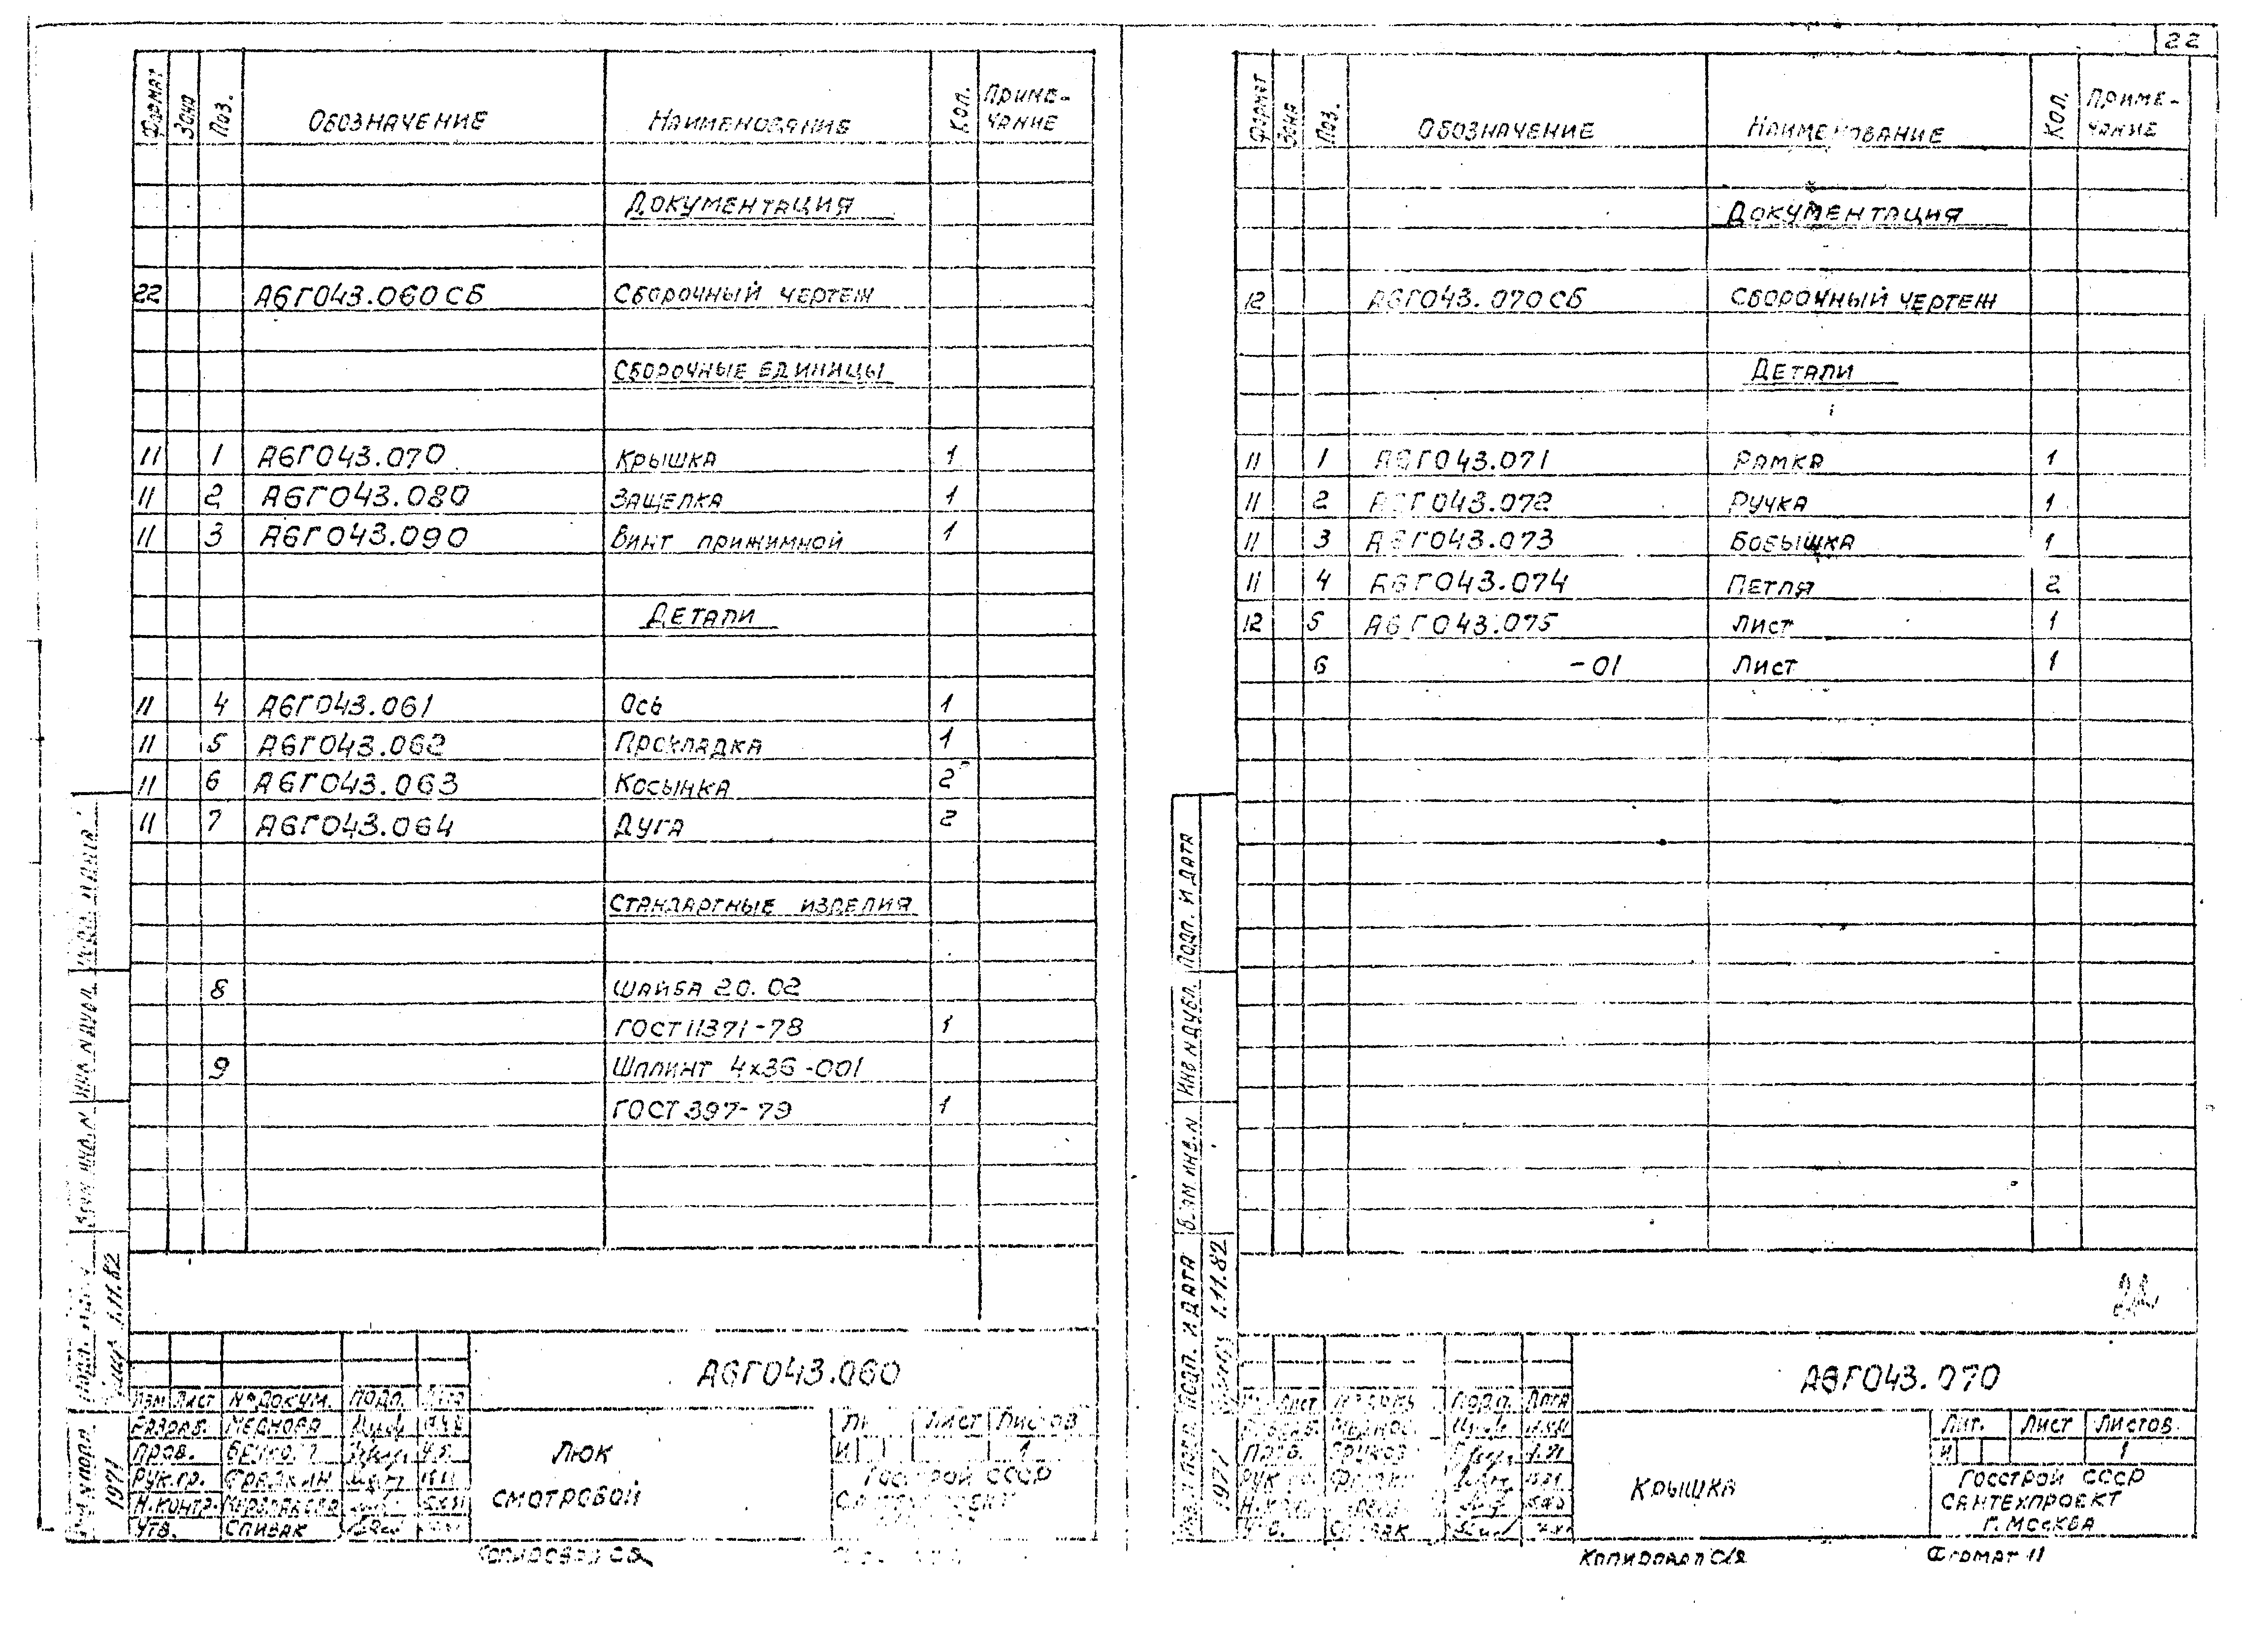 22
Формат Зона Поз. Обозначение Наименование Кол. Приме-
чание
Документация
22 А6Г043.060СБ Сборочный чертеж
Сборочные единицы
11 1 А6Г043.070 Крышка 1
11 2 А6Г043.080 Защелка 1
11 3 А6Г043.090 Винт прижимной 1
Детали
11 4 А6Г043.061 Ось 1
11 5 А6Г043.062 Прокладка 1
11 6 А6Г043.063 Косынка 2
11 7 А6Г043.064 Дуга 2
Стандартные изделия
8 Шайба 20.02
ГОСТ 11371-78 1
9 Шплинт 4х36-001
ГОСТ 397-79 1
1.11.82
1971
А6Г043.060
Изм Лист № докум. Подп.
Разраб.
Пров.
Рук.гр.
Н.контр.
Утв. Спивак
Люк
смотровой
Лист Листов
И 1
Госстрой СССР
Копировал
Формат Зона Поз. Обозначение Наименование Кол. Приме-
чание
Документация
12 А6Г043.070СБ Сборочный чертеж
Детали
11 1 А6Г043.071 Рамка 1
11 2 А6Г043.072 Ручка 1
11 3 А6Г043.073 Бобышка 1
11 4 А6Г043.074 Петля 2
12 5 А6Г043.075 Лист 1
6 -01 Лист 1
Подп. и дата
Инв.N дубл.
Взам.инв.N
Подп. и дата
1.11.82
1971
22
А6Г043.070
Лист Подп. Дата
Крышка
Лит. Лист Листов
И 1
Госстрой СССР
Сантехпроект
г. Москва
Копировал
Формат 11